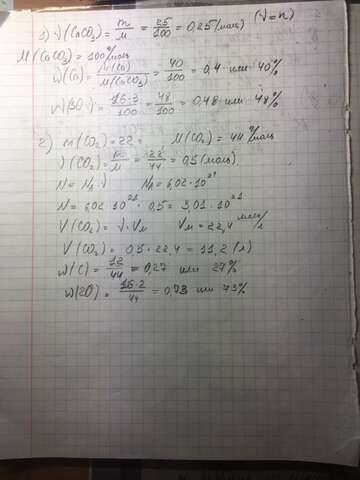 1) ν(CaCO₃) = m/M = 25/100 = 0,25 (моль) (ν=n)
M(CaCO₃) = 100 г/моль
ω(Ca) = M(Ca)/M(CaCO₃) = 40/100 = 0,4 или 40%
ω(3O) = 16·3/100 = 48/100 = 0,48 или 48%
2) m(CO₂) = 22 г M(CO₂) = 44 г/моль
ν(CO₂) = m/M = 22/44 = 0,5 (моль)
N = Nₐ · ν Nₐ = 6,02 · 10²¹
N = 6,02 · 10²¹ · 0,5 = 3,01 · 10²¹
V(CO₂) = ν · Vm Vm = 22,4 моль/л
V(CO₂) = 0,5 · 22,4 = 11,2 (л)
ω(C) = 12/44 = 0,27 или 27%
ω(2O) = 16·2/44 = 0,73 или 73%